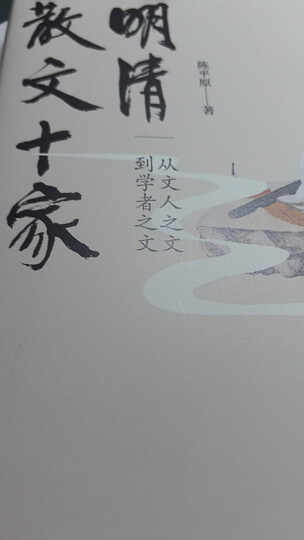 明清
散文十家
从文人之文
到学者之文
陈平原——著